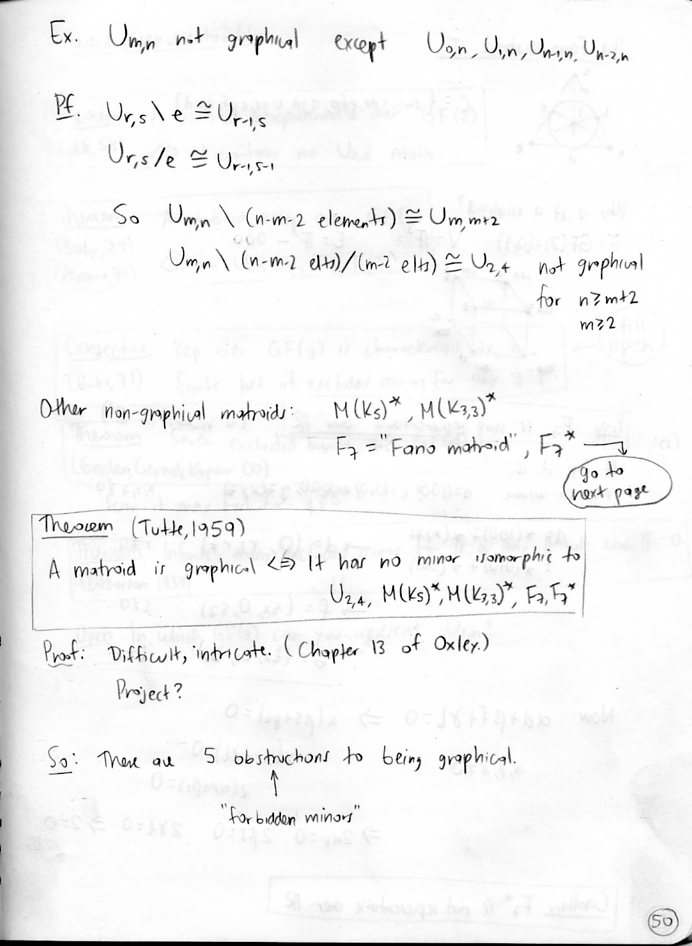 Ex. U_{m,n} not graphical except U_{0,n}, U_{1,n}, U_{n-1,n}, U_{n-2,n}
Pf. U_{r,s} \ e ≅ U_{r-1,s}
U_{r,s} / e ≅ U_{r-1,s-1}
So U_{m,n} \ (n-m-2 elements) ≅ U_{m,m+2}
U_{m,n} \ (n-m-2 elts)/(m-2 elts) ≅ U_{2,4} not graphical
for n≥m+2
m≥2
Other non-graphical matroids: M(K_5)*, M(K_{3,3})*
F_7 = "Fano matroid", F_7* →
go to
next page
Theorem (Tutte, 1959)
A matroid is graphical <=> It has no minor isomorphic to
U_{2,4}, M(K_5)*, M(K_{3,3})*, F_7, F_7*
Proof: Difficult, intricate. (Chapter 13 of Oxley.)
Project?
So: There are 5 obstructions to being graphical.
↑
"forbidden minors"
50